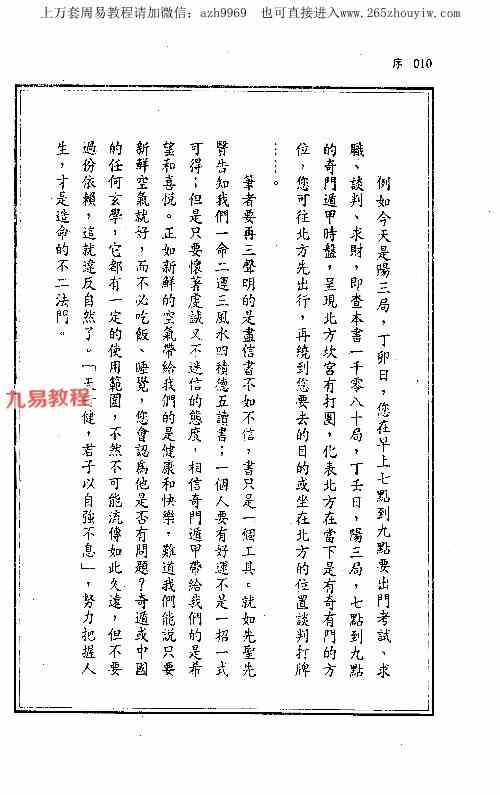 上万套周易教程请加微信：azh9969 也可直接进入www.265zhouyiw.com
序 010
例如今天是陽三局，丁卯日，您在早上七點到九點要出門考試、求
職、談判、求財，即查本書一千零八十局，丁壬日，陽三局，七點到九點
的奇門遁甲時盤，呈現北方坎宮有打圈，化表北方在當下是有奇有門的方
位，您可往北方先出行，再繞到您要去的目的或坐在北方的位置談判打牌
……。
筆者要再三聲明的是盡信書不如不信，書只是一個工具。就如先聖先
賢告知我們一命二運三風水四積德五讀書；一個人要有好運不是一招一式
可得；但是只要懷著虔誠又不迷信的態度，相信奇門遁甲帶給我們的是希
望和喜悅。正如新鮮的空氣帶給我們的是健康和快樂，難道我們能說只要
新鮮空氣就好，而不必吃飯、睡覺，您會認為他是否有問題？奇遁或中國
的任何玄學，它都有一定的使用範圍，不然不可能流傳如此久遠，但不要
過份依賴，這就違反自然了。「天行健，君子以自強不息」，努力把握人
生，才是造命的不二法門。
九易教程